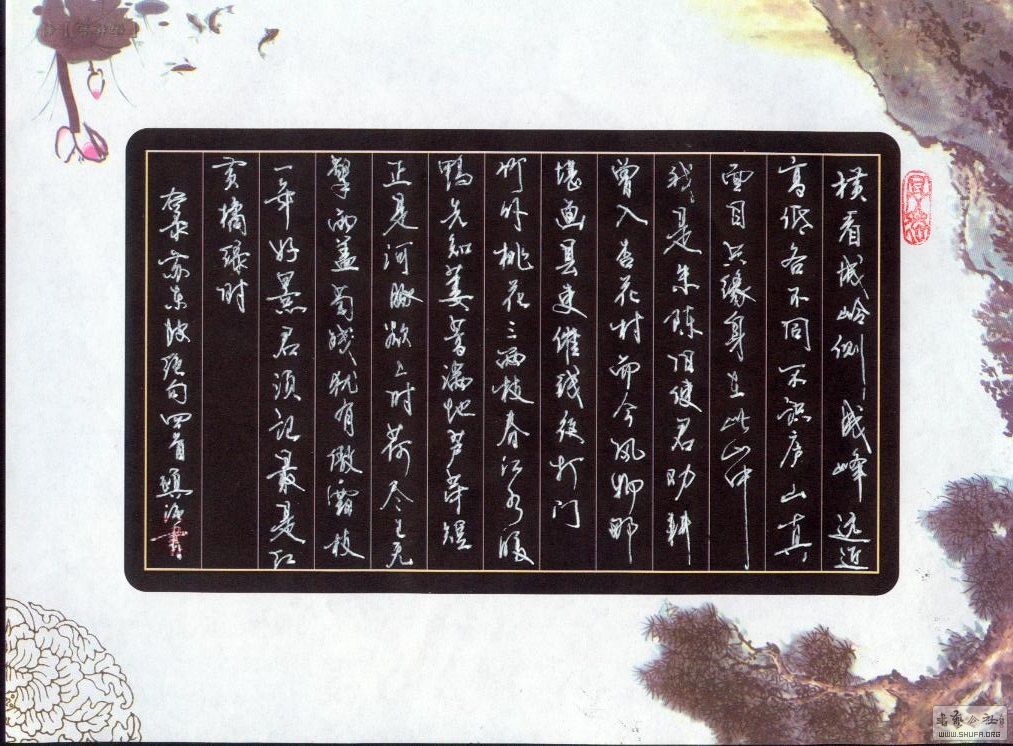 横看成岭侧成峰远近
高低各不同不识庐山真
面目只缘身在此山中
我是朱陈旧使君劝耕
曾入杏花村而今风物那
堪画县吏催钱夜打门
竹外桃花三两枝春江水暖
鸭先知蒌蒿满地芦芽短
正是河豚欲上时荷尽已无
擎雨盖菊残犹有傲霜枝
一年好景君须记最是
黄橘绿时
右录苏东坡绝句四首 书
书艺公社
WWW.SHUFA.ORG